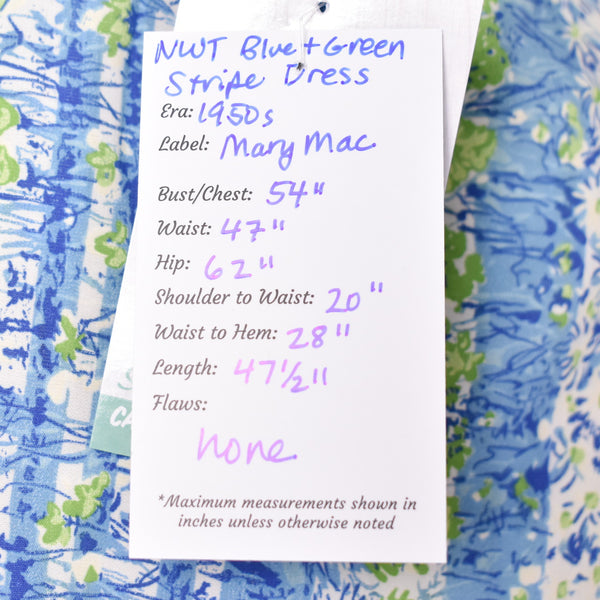 NWT Blue + Green
Stripe Dress
Era: 1950s
Label: Mary Mac
Bust/Chest: 54"
Waist: 47"
Hip: 62"
Shoulder to Waist: 20"
Waist to Hem: 28"
Length: 47 1/2"
Flaws:
none
*Maximum measurements shown in
inches unless otherwise noted